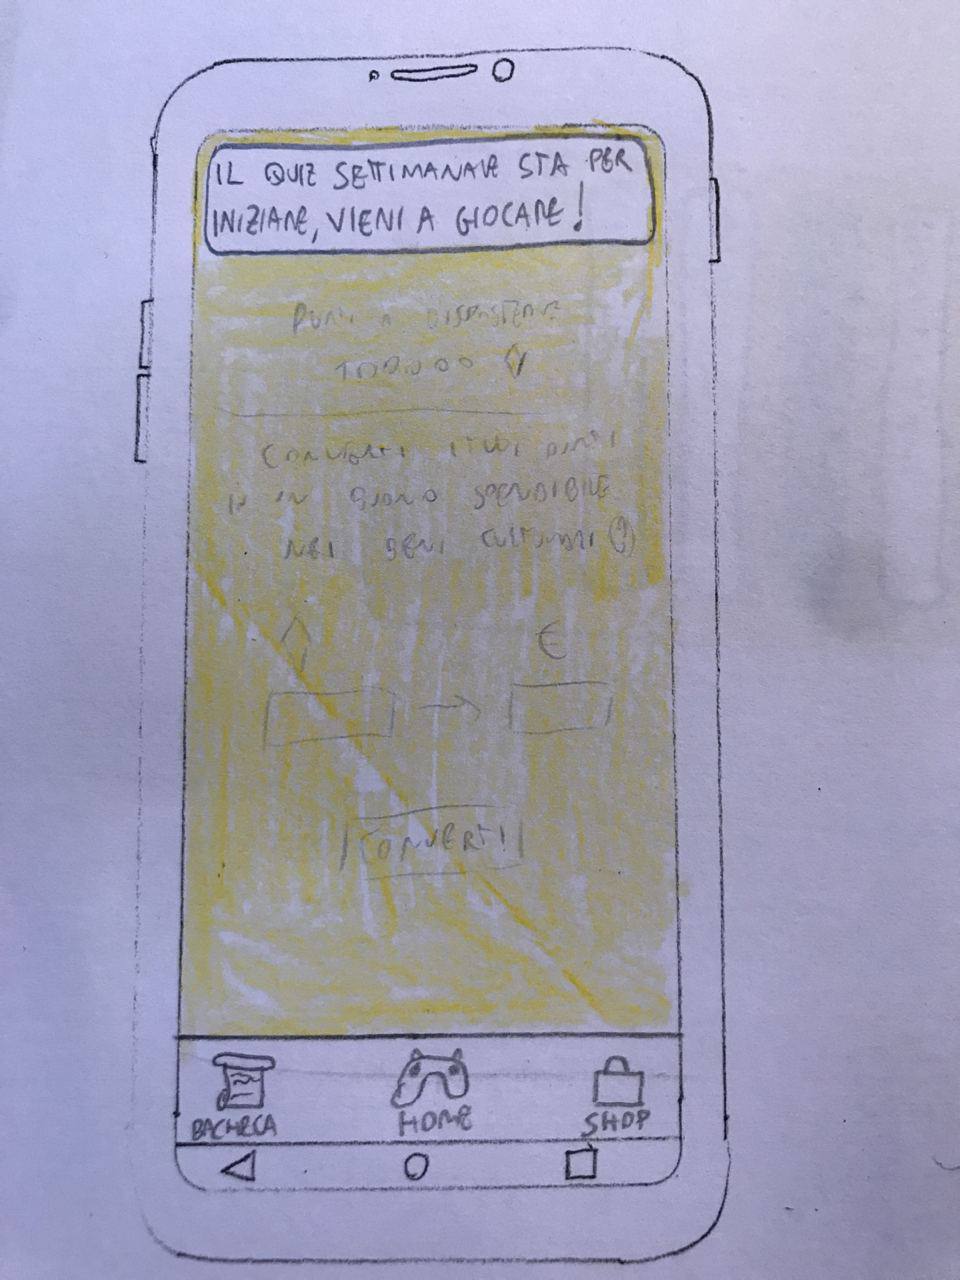 IL QUIZ SETTIMANALE STA PER
INIZIARE, VIENI A GIOCARE!
PUNTI A DISPOSIZIONE
100.000
CONVERTI I TUOI PUNTI
IN UN BUONO SPENDIBILE
NEI BENI CULTURALI ?
€
→
CONVERTI
BACHECA HOME SHOP